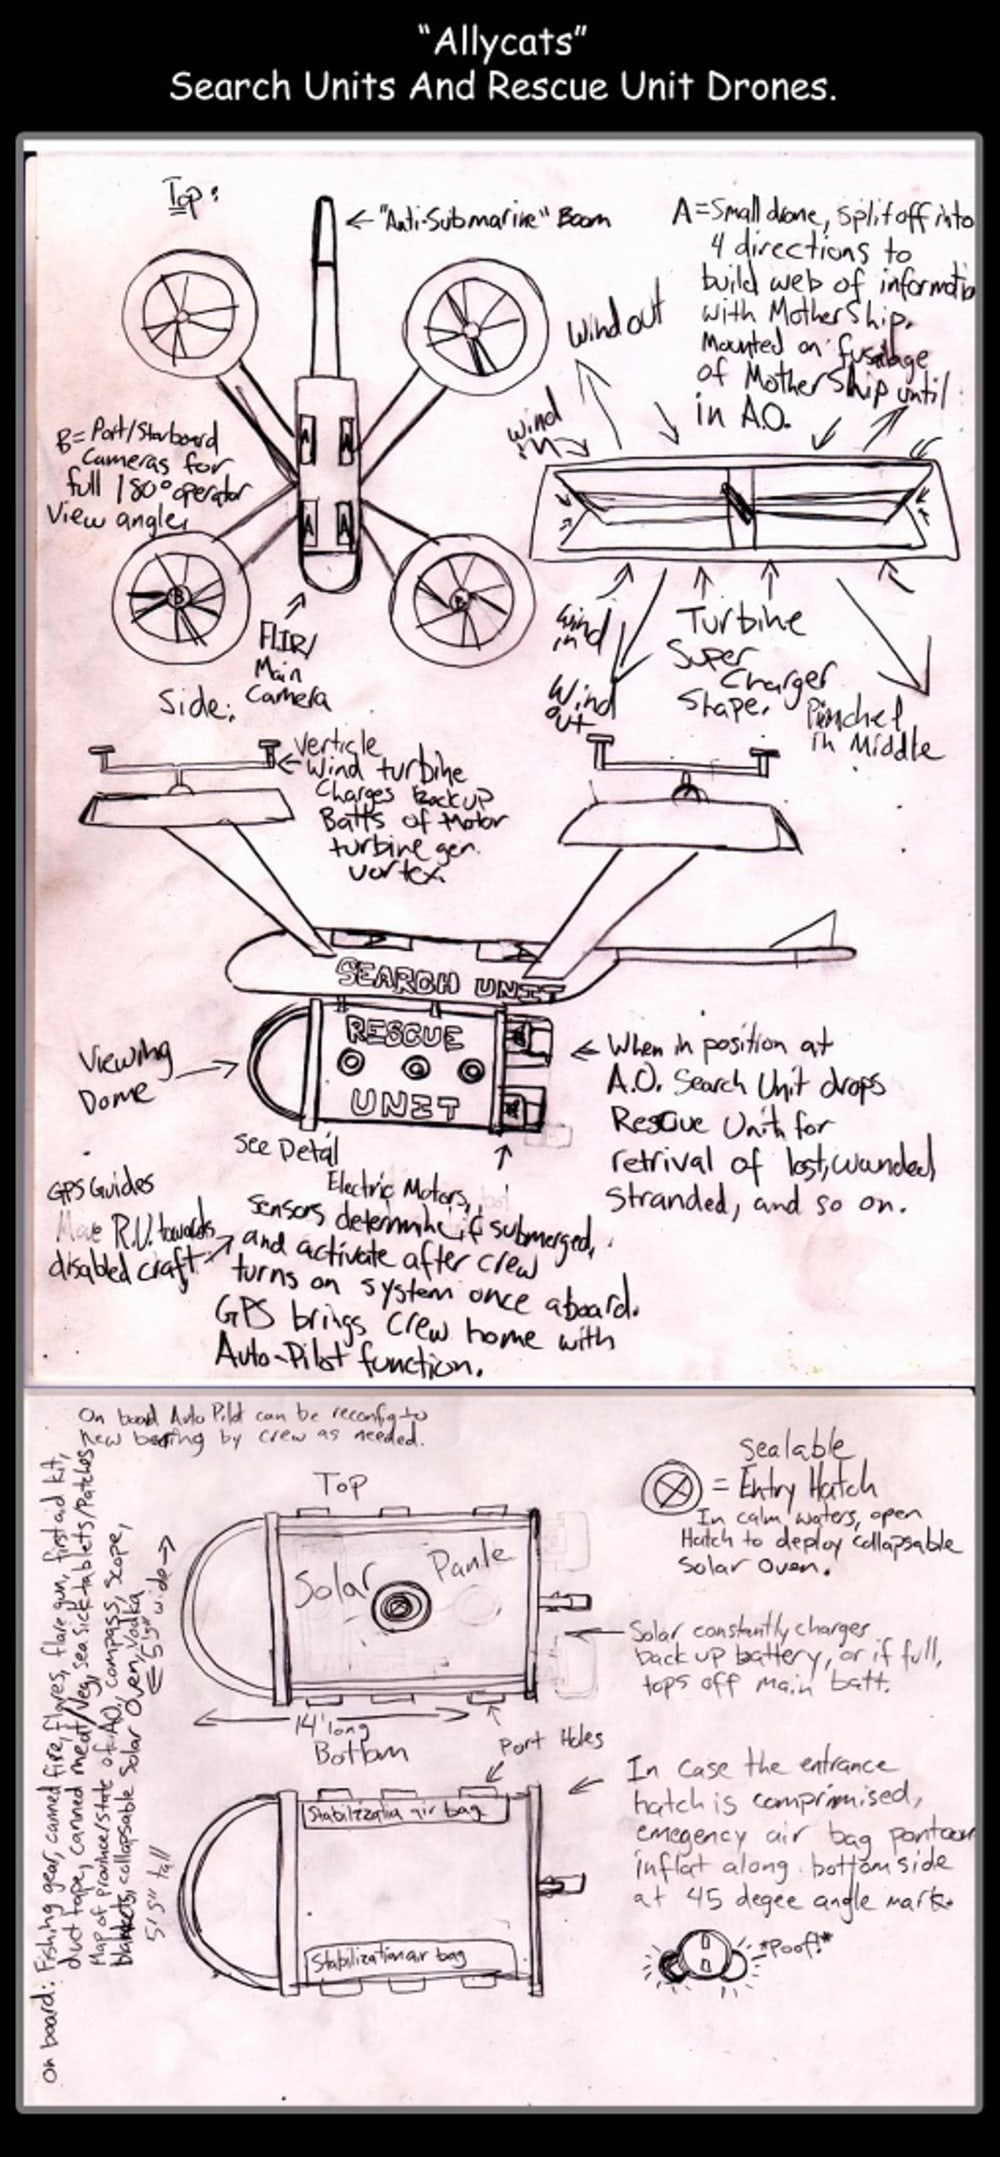 “Allycats”
Search Units And Rescue Unit Drones.
Top:
← "Anti-Submarine" Boom
A=Small drone, split off into
4 directions to
build web of informatio
with Mother Ship.
Mounted on fuselage
of Mother Ship until
in A.O.
Wind out
Wind
in
B= Port/Starboard
Cameras for
full 180° operator
View angle,
A
A
A
A
B
B
FLIR/
Main
Camera
Wind
in
Wind
out
Turbine
Super
Charger
Shape.
Pinched
in Middle
Side:
Verticle
Wind turbine
Charges Back up
Batts of Motor
turbine gen.
vortex.
SEARCH UNIT
RESCUE
UNIT
Viewing
Dome
See Detail
← When in position at
A.O. Search Unit drops
Rescue Unit for
retrival of lost, wounded,
stranded, and so on.
GPS Guides
Move R.U. towards
disabled craft
Electric Motors,
sensors determine if submerged,
and activate after crew
turns on system once aboard.
GPS brings crew home with
Auto-Pilot function.
On board Auto Pilot can be reconfig to
new bearing by crew as needed.
On board: Fishing gear, canned fire, flares, flare gun, first aid kit,
duct tape, canned meat/veg, sea sick tablets/Patches,
Map of province/state of AO, compass, scope,
blankets, collapsable Solar Oven, vodka
← 5'5" wide →
5'5" tall
Top
Solar Panle
14' long
Bottom
Port Holes
Stabilization air bag
Stabilization air bag
sealable
= Entry Hatch
In calm waters, open
Hatch to deploy collapsable
solar oven.
Solar constantly charges
back up battery, or if full,
tops off main batt.
In case the entrance
hatch is comprimised,
emegency air bag pontoon
inflat along bottom side
at 45 degee angle mark.
*Poof!*